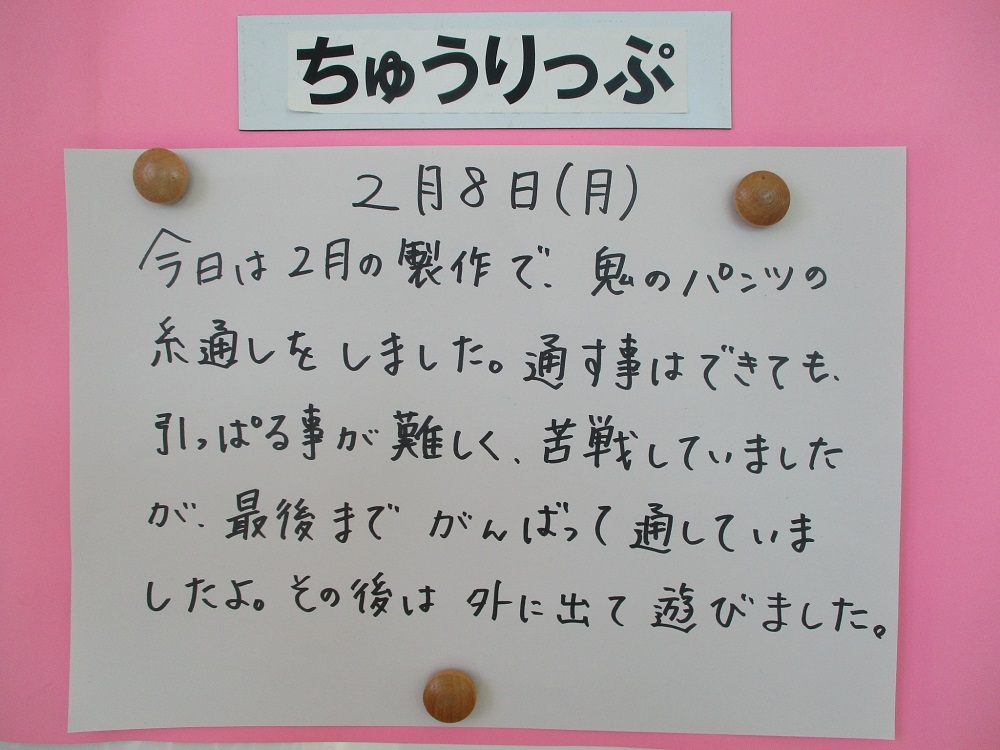 ちゅうりっぷ
2月8日(月)
今日は2月の製作で、鬼のパンツの
糸通しをしました。通す事はできても、
引っぱる事が難しく、苦戦していました
が、最後までがんばって通していま
したよ。その後は外に出て遊びました。